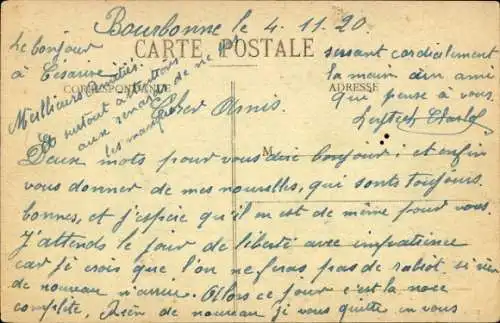 Bourbonne le 4.11.20.
CARTE POSTALE
CORRESPONDANCE
ADRESSE
M
Cher Amis.
Deux mots pour vous dire bonjour; et enfin
vous donner de mes nouvelles, qui sont toujours
bonnes, et j'espère qu'il en est de même pour vous.
J'attends le jour de liberté avec impatience
car je crois que l'on ne feras pas de rabiot, si rien
de nouveau n'arrive. Allors ce jour c'est la noce
complète. Rien de nouveau je vous quitte en vous
serrant cordialement
la main un ami
qui pense à vous
Le bonjour
à Césarine
Meilleurs
et surtout attention
aux renards de ne
les manquer